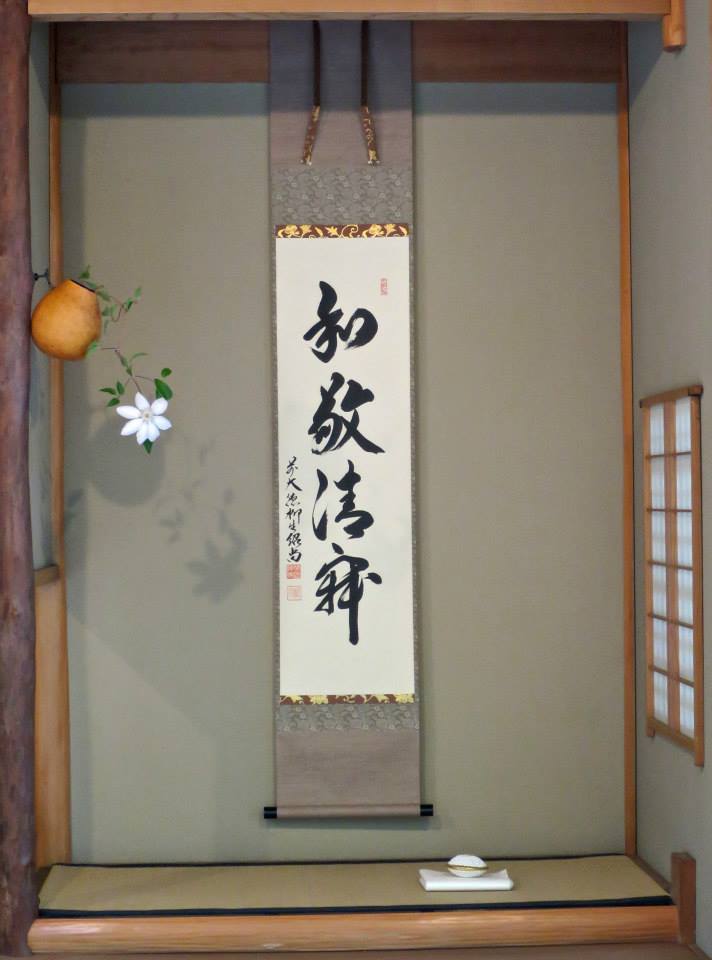 和敬清寂
前大徳柳生紹尚